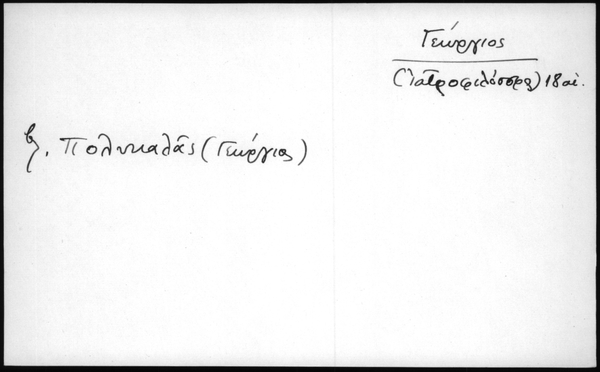 Γεώργιος
(Ἰατροφιλόσοφος) 18 αἰ.
βλ. Πολυκαλᾶς (Γεώργιος)